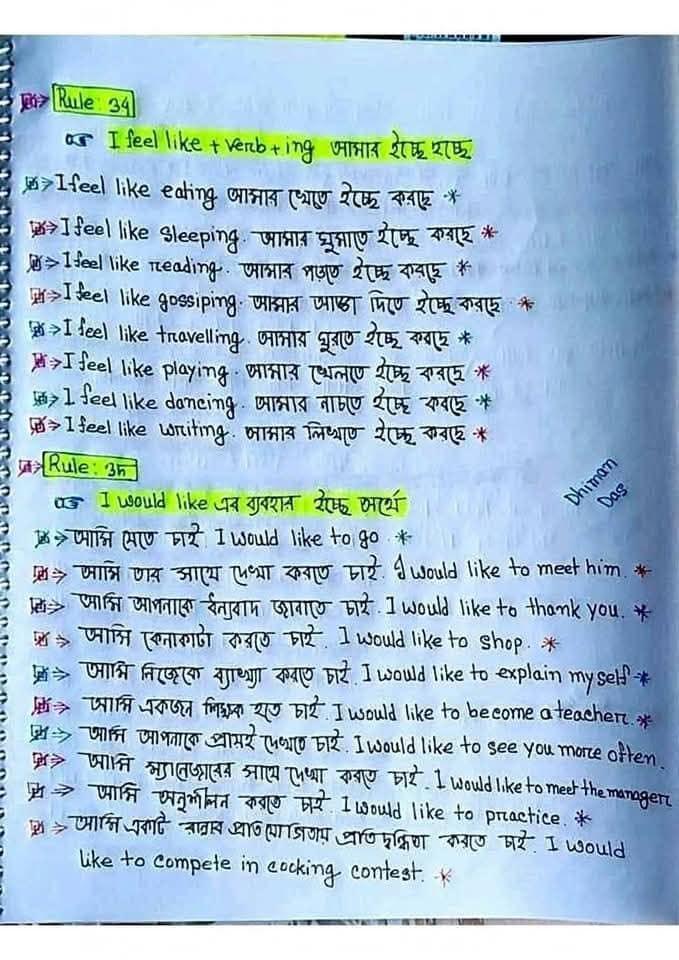 Rule: 34
I feel like + verb + ing আমার ইচ্ছে হচ্ছে
I feel like eating আমার খেতে ইচ্ছে করছে *
I feel like sleeping. আমার ঘুমাতে ইচ্ছে করছে *
I feel like reading. আমার পড়তে ইচ্ছে করছে *
I feel like gossiping. আমার আড্ডা দিতে ইচ্ছে করছে *
I feel like travelling. আমার ঘুরতে ইচ্ছে করছে *
I feel like playing. আমার খেলতে ইচ্ছে করছে *
I feel like dancing. আমার নাচতে ইচ্ছে করছে *
I feel like writing. আমার লিখতে ইচ্ছে করছে *
Rule: 35
I would like এর ব্যবহার ইচ্ছে অর্থে
Dhiman
Das
আমি যেতে চাই. I would like to go. *
আমি তার সাথে দেখা করতে চাই. I would like to meet him. *
আমি আপনাকে ধন্যবাদ জানাতে চাই. I would like to thank you. *
আমি কেনাকাটা করতে চাই. I would like to shop. *
আমি নিজেকে ব্যাখ্যা করতে চাই. I would like to explain my self *
আমি একজন শিক্ষক হতে চাই. I would like to become a teacher. *
আমি আপনাকে প্রায়ই দেখতে চাই. I would like to see you more often.
আমি ম্যানেজারের সাথে দেখা করতে চাই. I would like to meet the manager
আমি অনুশীলন করতে চাই. I would like to practice. *
আমি একটি রান্নার প্রতিযোগিতায় প্রতিদ্বন্ধিতা করতে চাই. I would
like to compete in cocking contest. *